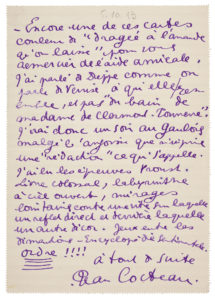 5.10.13
- Encore une de ces cartes
couleur de "dragée à l'amande
qu'on laisse" pour vous
remercier de l'aide amicale.
J'ai parlé de Dieppe comme on
parle de Venise, à qui elle
et pas du "bain" de
madame de Clermont-Tonnerre."
J'irai donc un soir au Gaulois
malgré l'angoisse que m'inspire
une "rédaction" ce qui s'appelle.
J'ai lu les épreuves Proust.
Livre colossal, labyrinthe
à ciel ouvert, mirages
lointains contre une vitre sur laquelle
un reflet direct et derrière laquelle
un autre décor. Jeux entre les
dimensions - Encyclopédie
ordre !!!!
à tout de suite
Jean Cocteau.